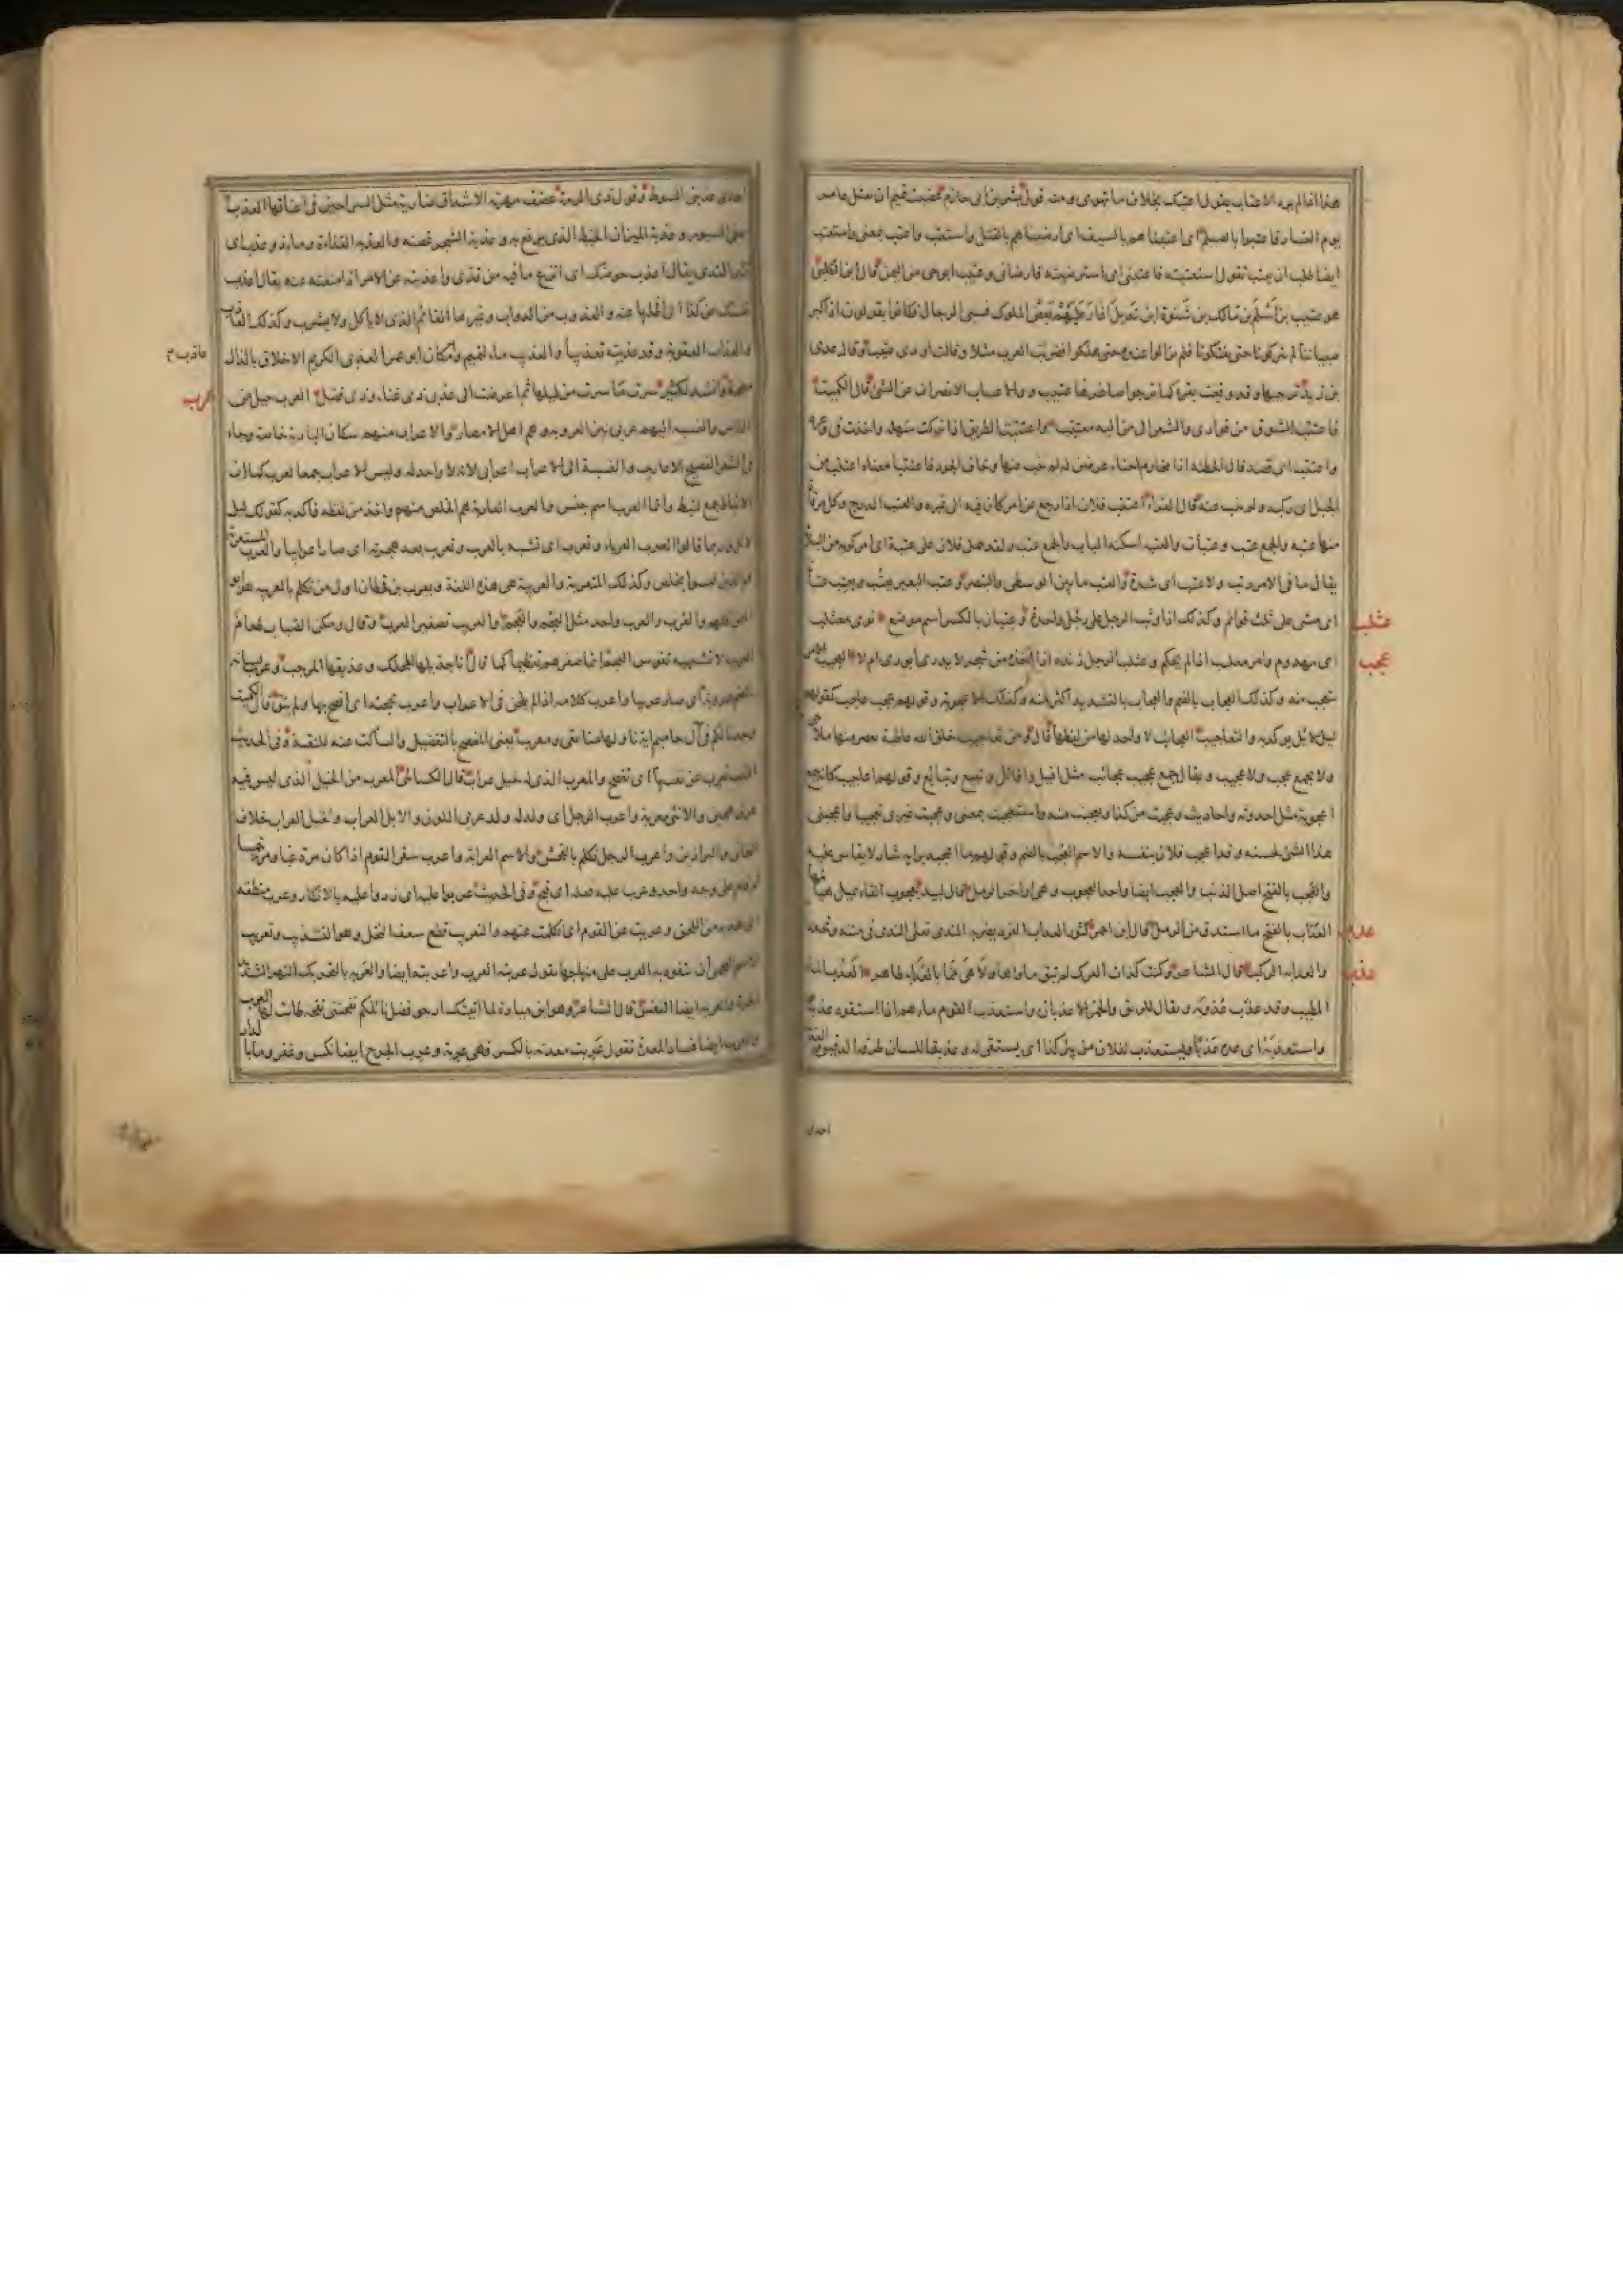 هذا اذا لم يرد الاعتاب يقول اعتبك بخلاف ما تهوى ومنه قول بشر بن ابى خازم غضبت تميم ان تقتل عامر
يوم النسار فاعتبوا بالصيلم اى اعتبناهم بالسيف اى ارضيناهم بالقتل واستعتب واعتب بمعنى واستعتب
ايضا طلب ان يعتب تقول استعتبته فاعتبنى اى استرضيته فارضانى وعتيب ابوحى من اليمن قال ابن الكلبى
هو عتيب بن اسلم بن مالك بن شنوة ابن تديل اغار عليهم بعض الملوك فسبى الرجال فكانوا يقولون اذا كبر
صبياننا لم يتركونا حتى يفتكونا فلم يزالوا عنده حتى هلكوا فضربت العرب مثلا وقالت اودى عتيب وقال عدى
بن زيد ترجيها وقد وقعت بقر كما ترجوا صاغرها عتيب والاعتتاب الانصراف عن الشئ قال الكميت
فاعتتب الشوق من فوادى والشعر الى من اليه معتتب واعتتبت الطريق اذا تركت سهله واخذت فى وعره
واعتتب اى قصد قال الحطيئة اذا مخارم احناء عرضن له لم ينب عنها وخاف الجور فاعتتبا معناه اعتتب من
الجبل اى ركبه ولم ينب عنه قال الفراء اعتتب فلان اذا رجع عن امر كان فيه الى غيره والعتب الدرج وكل مرقاة
منها عتبة والجمع عتب وعتبات والعتبة اسكفة الباب والجمع عتب ولقد حمل فلان على عتبة اى امر كريه من البلاء
يقال ما فى الامر رتب ولا عتب اى شدة والعتب ما بين الوسطى والبنصر وعتب البعير يعتب ويعتب عتبا
اى مشى على ثلث قوائم وكذلك اذا وثب الرجل على رجل واحدة وعتبان بالكسر اسم موضع نوى معثلب
عثلب
اى مهدوم وامر معثلب اذا لم يحكم وعثلب الرجل زنده اذا اخذه من شجر لا يدرى ايورى ام لا العجيب الامر
عجب
يتعجب منه وكذلك العجاب بالضم والعجاب بالتشديد اكثر منه وكذلك الاعجوبة وقولهم عجب عاجب كقولهم
ليل لائل يوكد به والتعاجيب العجائب لا واحد لها من لفظها قال ومن تعاجيب خلق الله غاطية يعصر منها ملاحى
ولا يجمع عجب ولا عجيب ويقال جمع عجيب عجائب مثل افيل وافائل وتبيع وتبائع وقولهم اعاجيب كانه جمع
اعجوبة مثل احدوثه واحاديث وعجبت من كذا وتعجبت منه واستعجبت بمعنى وعجبت غيرى تعجيبا واعجبنى
هذا الشئ لحسنه وقد اعجب فلان بنفسه والاسم العجب بالضم وقولهم ما اعجبه برايه شاذ لا يقاس عليه
والعجب بالفتح اصل الذنب والعجب ايضا واحد العجوب وهى اواخر الرمل قال لبيد بعجوب انقاء يميل هيامها
العداب بالفتح ما استدق من الرمل قال ابن احمر كثور العداب الفرد يضربه الندى تعلى الندى فى متنه وتحدرا
عدب
والعدابة الركب قال الشاعر وكنت كذات العرك لم تبق ماءها ولا هى مما بالعدابة طاهر العذب الماء
عذب
الطيب وقد عذب عذوبة ويقال للريق والخمر الاعذبان واستعذب القوم ماءهم اذا استقوه عذبا
واستعذبه اى عده عذبا ويستعذب لفلان من بئر كذا اى يستقى له وعذبة اللسان طرفه الدقيق
احدى
احدى عذبتى السوط وقول ذى الرمة غضف مهرتة الاشداق ضارية مثل السراحين فى اعناقها العذب
يعنى السيور وعذبة الميزان الخيط الذى يرفع به وعذبة الشجر غصنه والعذبة القذاة وماء ذو عذب اى
كثير القذى يقال اعذب حوضك اى انزع ما فيه من قذى واعذبته عن الامر اذا منعته عنه يقال اعذب
نفسك عن كذا اى اظلفها عنه والعذوب من الدواب وغيرها القائم الذى لا ياكل ولا يشرب وكذلك العاذب
والعذاب العقوبة وقد عذبته تعذيبا والعذيب ماء لتميم ومكان ابو عمرو العذبى الكريم الاخلاق بالذال
عاذب ح
معجمة وانشد لكثير سرت ما سرت من ليلها ثم اعرضت الى عذبى ذى غناء وذى فضل العرب جيل من
عرب
الناس والنسبة اليهم عربى بين العروبة وهم اهل الامصار والاعراب منهم سكان البادية خاصة وجاء
فى الشعر الفصيح الاعاريب والنسبة الى الاعراب اعرابى لانه لا واحد له وليس الاعراب جمعا لعرب كما ان
الانباط جمع لنبط وانما العرب اسم جنس والعرب العاربة هم الخلص منهم واخذ من لفظه فاكد به كقولك ليل
لائل وربما قالوا العرب العرباء وتعرب اى تشبه بالعرب وتعرب بعد هجرته اى صار اعرابيا والعرب المستعربة
هم الذين ليسوا بخلص وكذلك المتعربة والعربية هى هذه اللغة ويعرب بن قحطان اول من تكلم بالعربية وهو
ابو اليمن كلهم والعرب والعرب واحد مثل العجم والعجم والعريب تصغير العرب وقال ومكن الضباب طعام
العريب لا تشتهيه نفوس العجم انما صغرهم تعظيما كما قال انا جذيلها المحكك وعذيقها المرجب وعرب لسانه
بالضم عروبة اى صار عربيا واعرب كلامه اذا لم يلحن فى الاعراب واعرب بحجته اى افصح بها ولم يتق قال الكميت
وجدنا لكم فى آل حاميم اية تاولها منا تقى ومعرب يعنى المفصح بالتفضيل والساكت عنه للتقية وفى الحديث
الثيب تعرب عن نفسها اى تفصح والمعرب الذى له خيل عراب قال الكسائى المعرب من الخيل الذى ليس فيه
عرق هجين والانثى معربة واعرب الرجل اى ولد له ولد عربى اللون والابل العراب والخيل العراب خلاف
البخاتى والبراذين واعرب الرجل تكلم بالفحش والاسم العرابة واعرب سقى القوم اذا كان مرة غبا ومرة خمسا
ثم قام على وجه واحد وعرب عليه فعله اى قبح وفى الحديث عربوا عليه اى ردوا عليه بالانكار وعرب منطقه
اى هذبه من اللحن وعربت عن القوم اى تكلمت عنهم والتعريب قطع سعف النخل وهو التشذيب وتعريب
الاسم العجمى ان تتفوه به العرب على منهاجها تقول عربته العرب واعربته ايضا والعربة بالتحريك النهر الشديد
الجرية والعربة ايضا النفس قال الشاعر وهو ابن ميادة لما اتيتك ارجو فضل نائلكم نفحتنى نفحة طابت لها العرب
والعرب ايضا فساد المعدة تقول عربت معدته بالكسر فهى عربة وعرب الجرح ايضا نكس وغفر